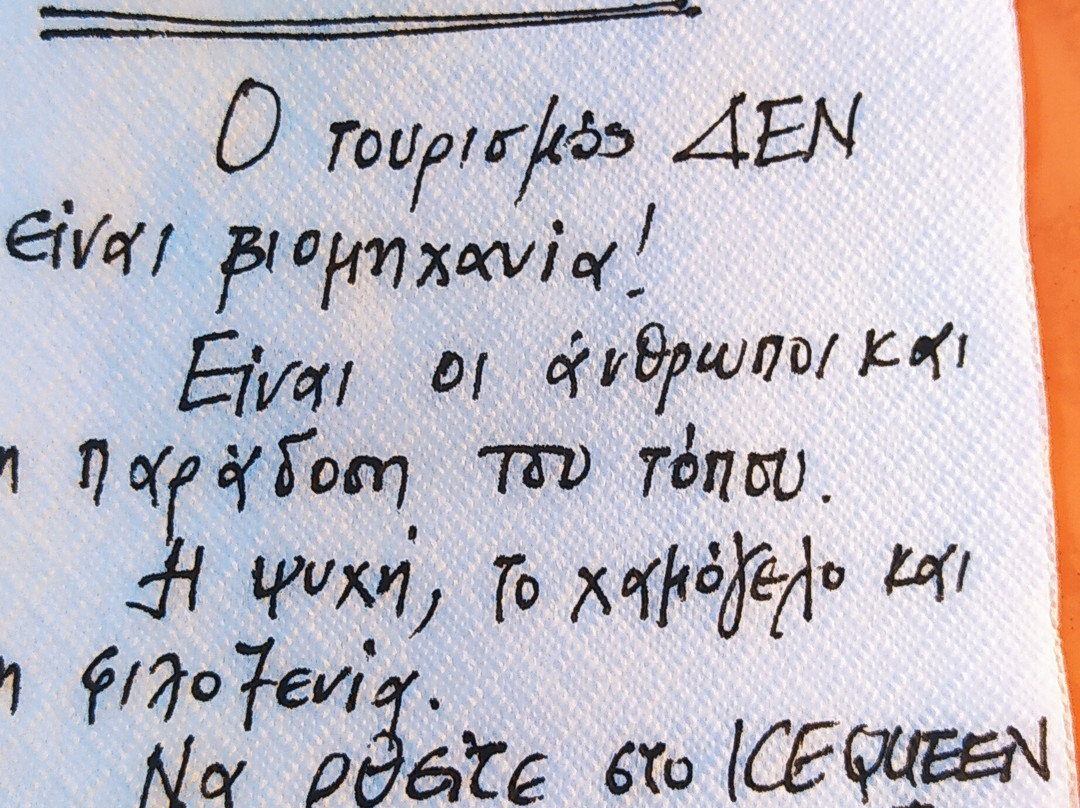 Ο τουρισμός ΔΕΝ
είναι βιομηχανία!
Είναι οι άνθρωποι και
η παράδοση του τόπου.
Η ψυχή, το χαμόγελο και
η φιλοξενία.
Να ρθείτε στο ICE QUEEN